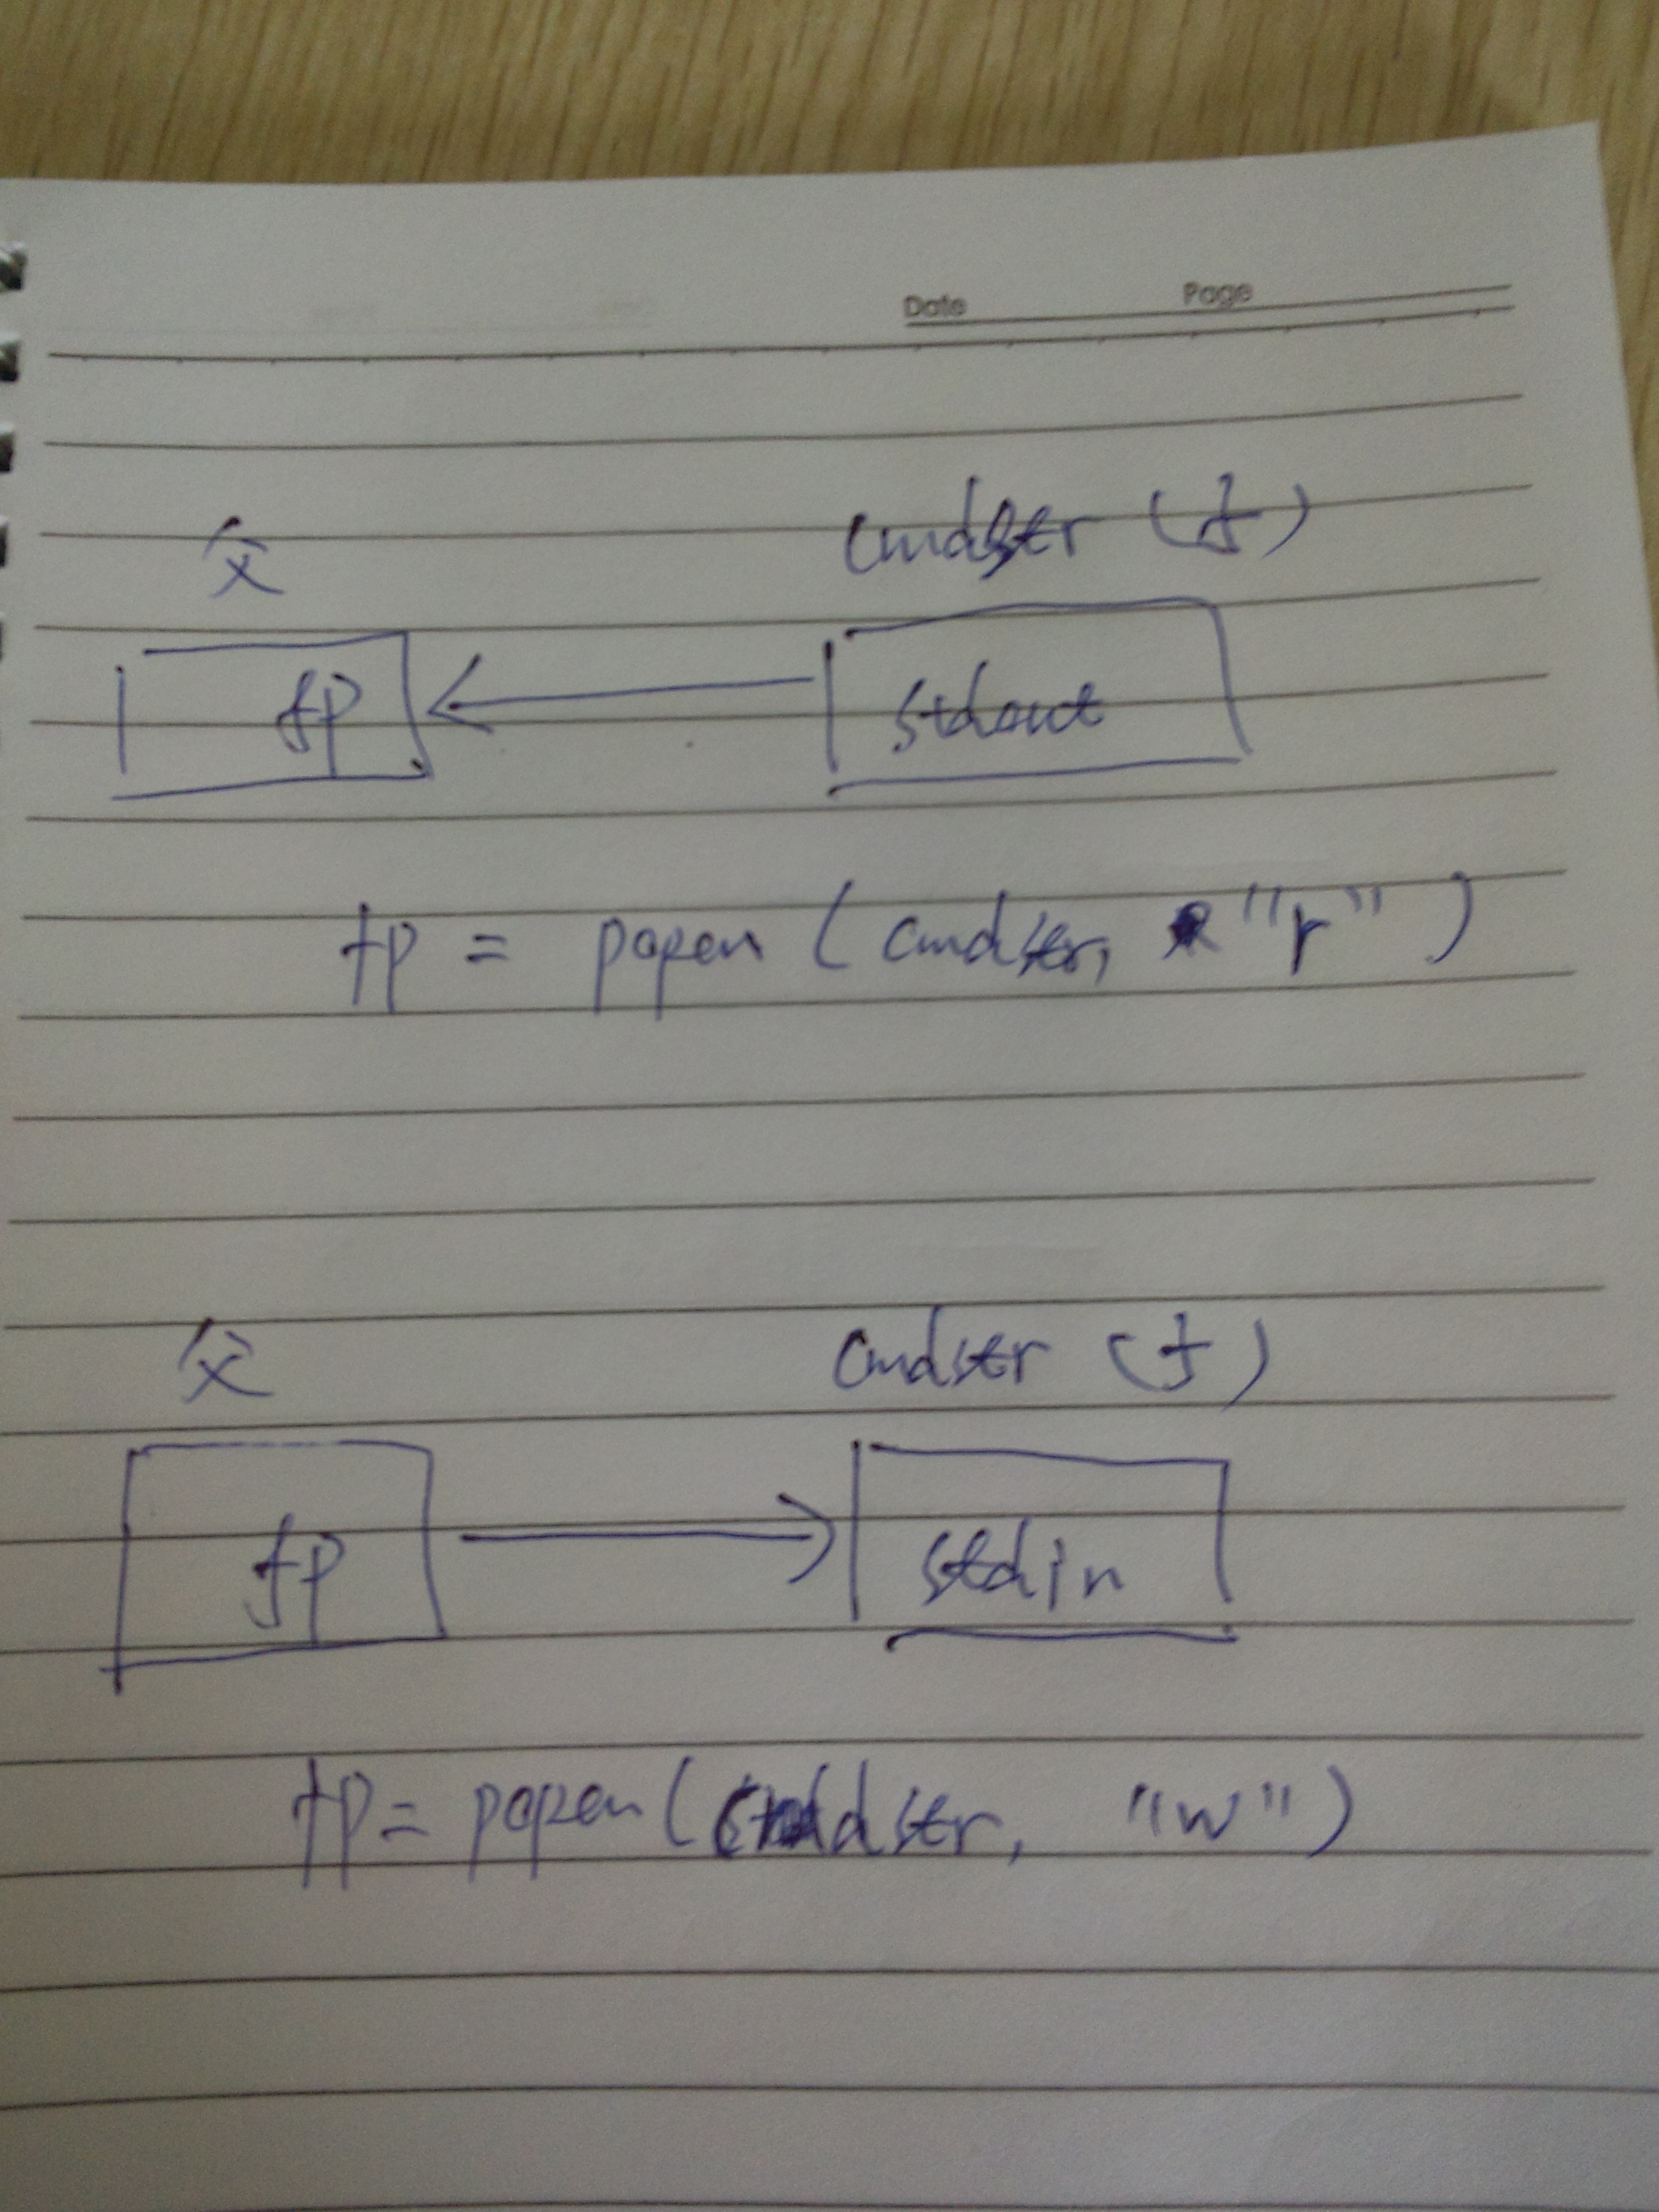 Date Page
父 cmdstr (子)
fp stdout
fp = popen ( cmdstr, "r" )
父 cmdstr (子)
fp stdin
fp = popen ( cmdstr, "w" )